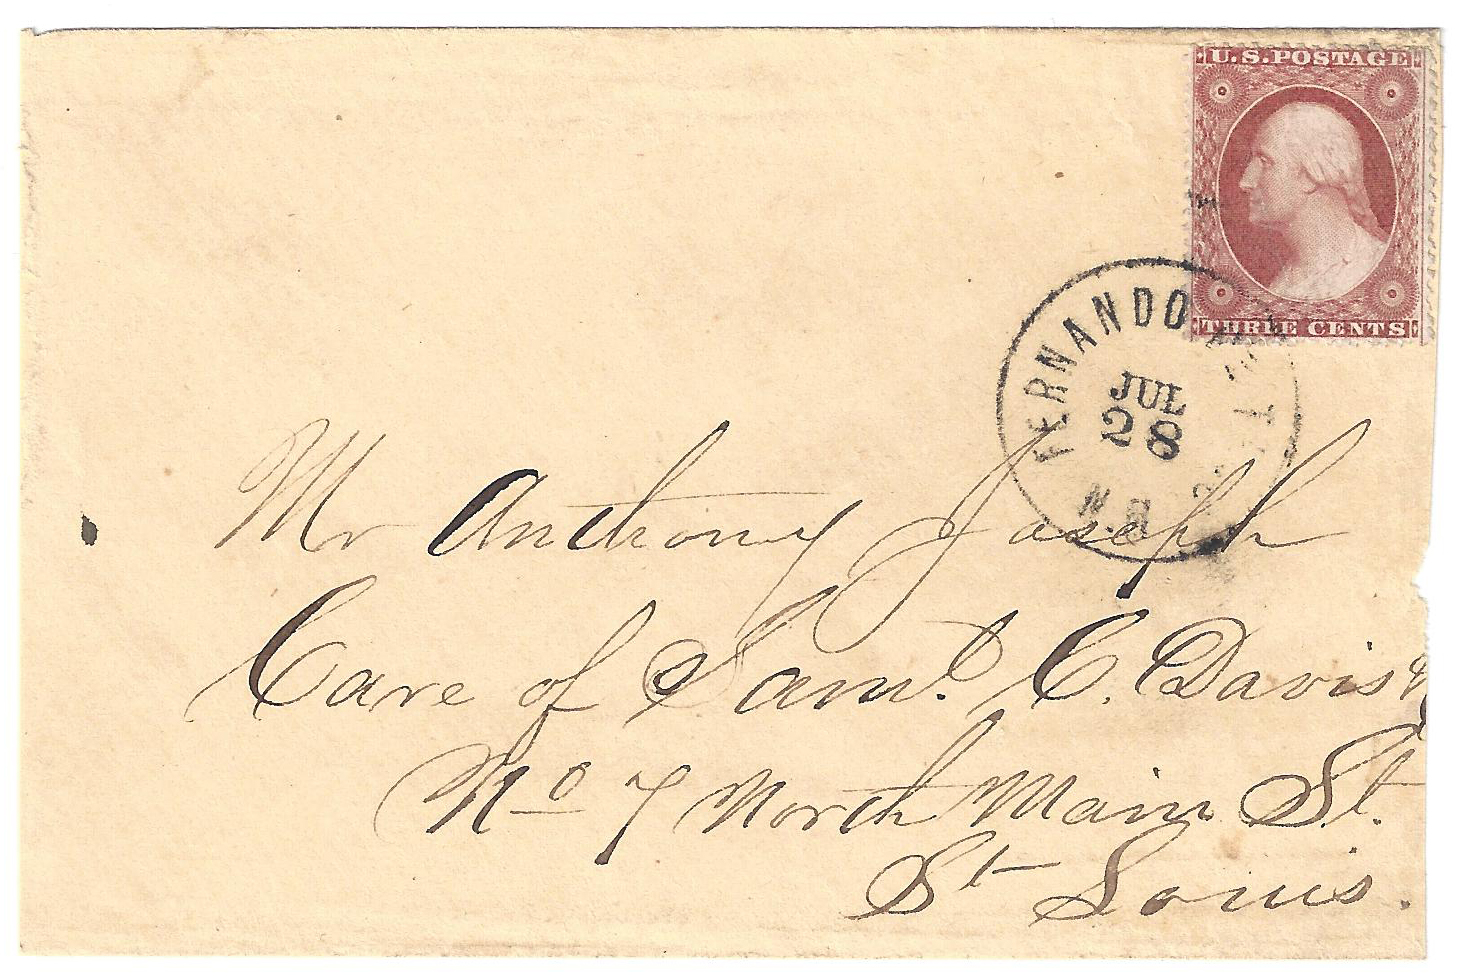 U.S. POSTAGE
THREE CENTS
FERNANDO
JUL
28
Mr Anthony Joseph
Care of Saml. C. Davis &
No 7 North Main St.
St Louis.